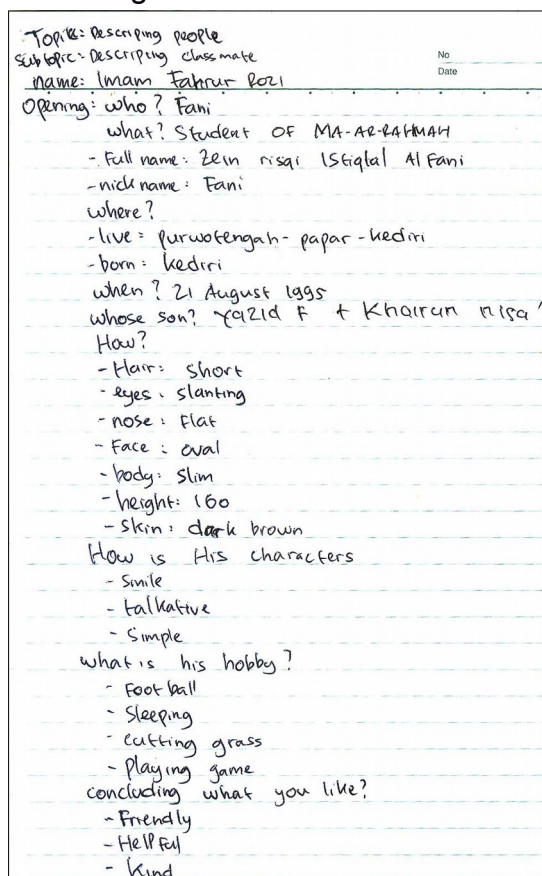 Topik: Descriping people
Subtopic: Descriping classmate
No
Date
name: Imam Fahrur Rozi
Opening: who? Fani
what? Student OF MA-AR-RAHMAH
- Full name: Zein risqi Istiqlal Al Fani
- nick name: Fani
where?
- live: purwotengah - papar - kediri
- born: kediri
when? 21 August 1995
whose son? Yazid F + Khoirun nisa'
How?
- Hair: short
- eyes: slanting
- nose: flat
- Face: oval
- body: slim
- height: 160
- skin: dark brown
How is His characters
- Smile
- talkative
- Simple
what is his hobby?
- Foot ball
- Sleeping
- cutting grass
- playing game
concluding what you like?
- Friendly
- Help Ful
- Kind